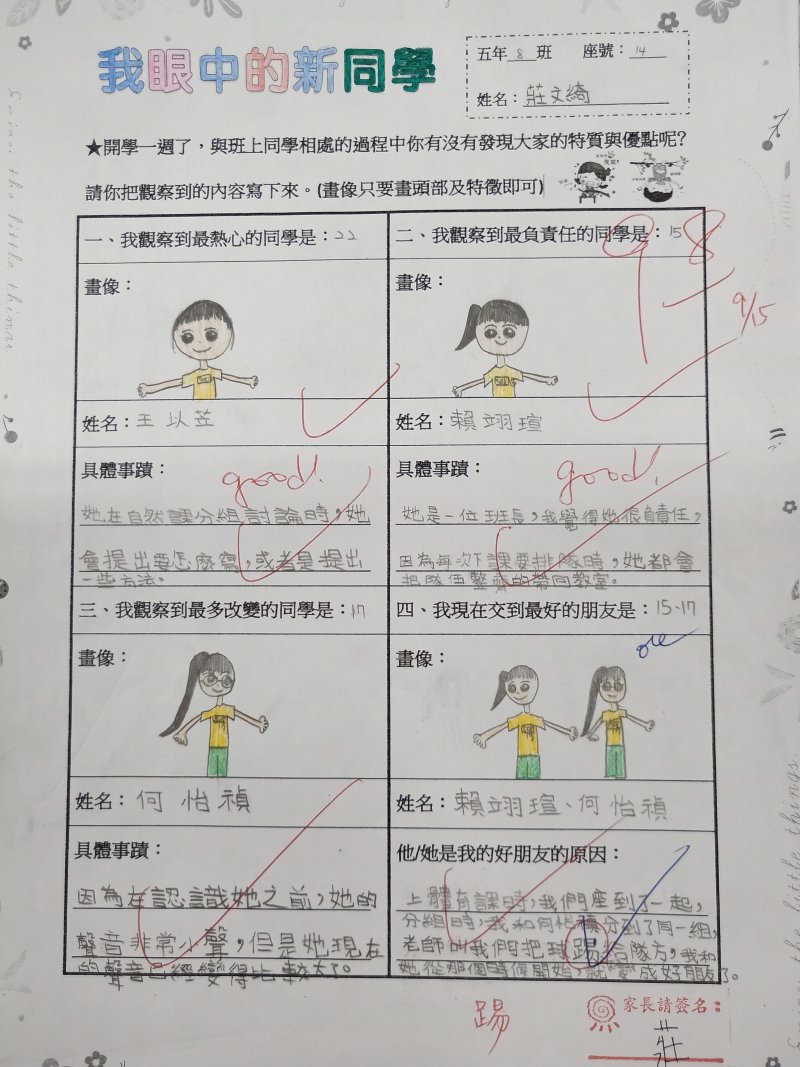 我眼中的新同學
五年8班 座號：14
姓名：莊文綺
★開學一週了，與班上同學相處的過程中你有沒有發現大家的特質與優點呢?
請你把觀察到的內容寫下來。(畫像只要畫頭部及特徵即可)
一、我觀察到最熱心的同學是：22
二、我觀察到最負責任的同學是：15
98
9/15
畫像：
畫像：
姓名：王以苙
姓名：賴翊瑄
具體事蹟：
good!
她在自然課分組討論時，她
會提出要怎麼寫，或者是提出
一些方法。
具體事蹟：
good!
她是一位班長，我覺得她很負責任，
因為每次下課要排隊時，她都會
把隊伍整齊的帶回教室。
三、我觀察到最多改變的同學是：17
四、我現在交到最好的朋友是：15、17
畫像：
畫像：
姓名：何怡禎
姓名：賴翊瑄、何怡禎
具體事蹟：
因為在認識她之前，她的
聲音非常小聲，但是她現在
的聲音已經變得比較大了。
他/她是我的好朋友的原因：
上體育課時，我們座到了一起，
分組時，我和何怡禎分到了同一組，
老師叫我們把球踢給隊方，我和
她從那個時候開始，就變成好朋友了。
踢
家長請簽名：
莊